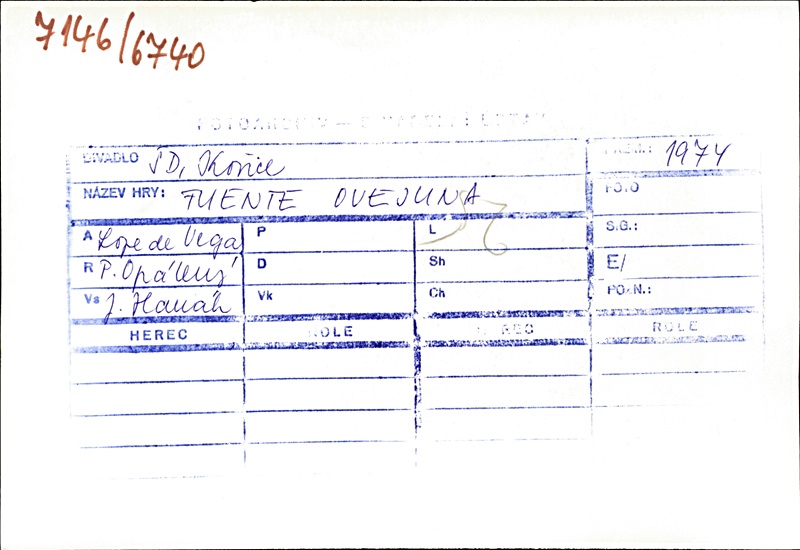 7146/6740
DIVADLO ŠD, Košice PREM.: 1974
NÁZEV HRY: FUENTE OVEJUNA FOTO
A Lope de Vega P L S.G.:
R P. Opálený D Sh E/
Vs J. Hanák Vk Ch POZN.:
HEREC ROLE HEREC ROLE